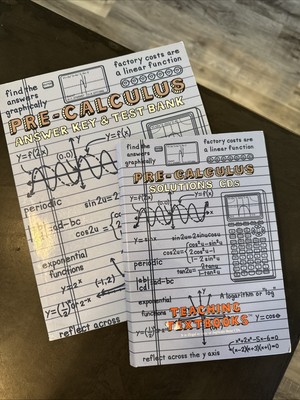 find the
answers
graphically
factory costs are
a linear function
PRE-CALCULUS
ANSWER KEY & TEST BANK
y=f(2x)
(0,0)
y=f(x)
periodic
sin2u=2
cos2u=
bd-bc
exponential
functions
y=2^x
(-1,2)
reflect across
find the
answers
graphically
factory costs are
a linear function
PRE-CALCULUS
SOLUTIONS CDS
periodic
sin2u=2sinucosu
cos2u=
2cos²u-1
1-2sin²u
tan2u=
ad-bc
exponential
functions
A logarithm or "log"
TEACHING
TEXTBOOKS
y=cosθ
reflect across the y axis
(x-2)(x+3)(x+1)=0